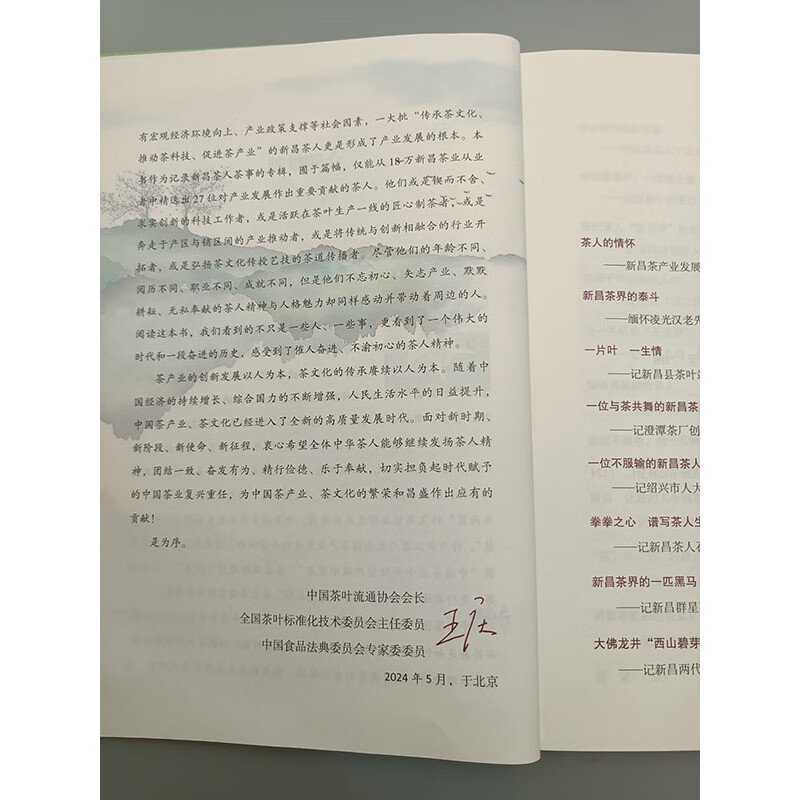 有宏观经济环境向上、产业政策支撑等社会因素，一大批“传承茶文化、
推动茶科技、促进茶产业”的新昌茶人更是形成了产业发展的根本。本
书作为记录新昌茶人茶事的专辑，囿于篇幅，仅能从 18 万新昌茶业从业
者中精选出 27 位对产业发展作出重要贡献的茶人。他们或是锲而不舍、
求实创新的科技工作者，或是活跃在茶叶生产一线的匠心制茶者，或是
奔走于产区与销区间的产业推动者，或是将传统与创新相融合的行业开
拓者，或是弘扬茶文化传授艺技的茶道传播者。尽管他们的年龄不同、
阅历不同、职业不同、成就不同，但是他们不忘初心、矢志产业、默默
耕耘、无私奉献的茶人精神与人格魅力却同样感动并带动着周边的人。
阅读这本书，我们看到的不只是一些人、一些事，更看到了一个伟大的
时代和一段奋进的历史，感受到了催人奋进、不渝初心的茶人精神。
茶产业的创新发展以人为本，茶文化的传承赓续以人为本。随着中
国经济的持续增长、综合国力的不断增强，人民生活水平的日益提升，
中国茶产业、茶文化已经进入了全新的高质量发展时代。面对新时期、
新阶段、新使命、新征程，衷心希望全体中华茶人能够继续发扬茶人精
神，团结一致、奋发有为、精行俭德、乐于奉献，切实担负起时代赋予
的中国茶业复兴重任，为中国茶产业、茶文化的繁荣和昌盛作出应有的
贡献！
是为序。
中国茶叶流通协会会长
全国茶叶标准化技术委员会主任委员
中国食品法典委员会专家委委员
王庆
2024 年 5 月，于北京
茶人的情怀
——新昌茶产业发展
新昌茶界的泰斗
——缅怀凌光汉老先
一片叶 一生情
——记新昌县茶叶
一位与茶共舞的新昌茶
——记澄潭茶厂创
一位不服输的新昌茶人
——记绍兴市人大
拳拳之心 谱写茶人生
——记新昌茶人石
新昌茶界的一匹黑马
——记新昌群星
大佛龙井“西山碧芽
——记新昌两代